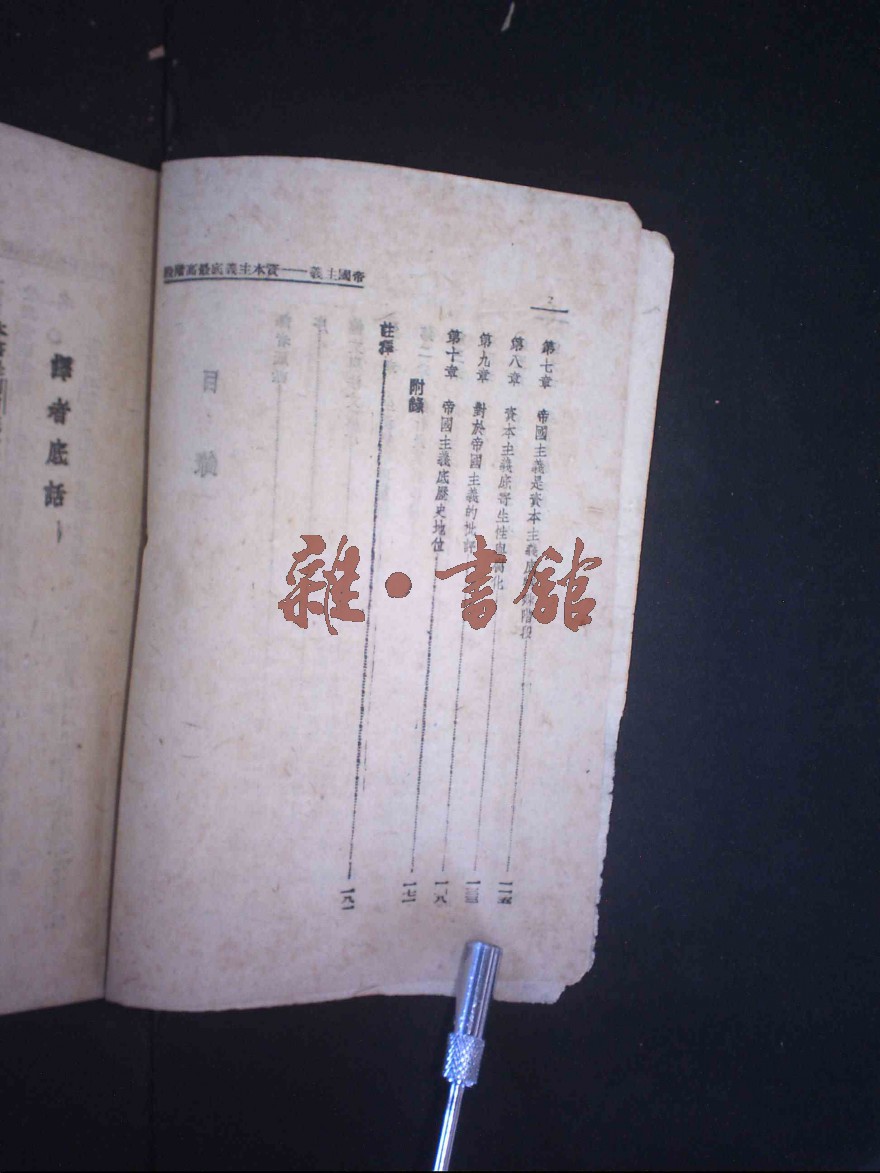 帝國主義——資本主義底最高階段
2
第七章 帝國主義是資本主義底特殊階段 一一五
第八章 資本主義底寄生性與腐化 一三三
第九章 對於帝國主義的批評
第十章 帝國主義底歷史地位
附錄 一七一
註釋 一八一
目
譯者底話
雜·書館